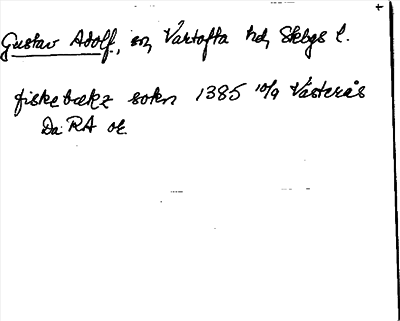 Gustav Adolf, sn, Vartofta hd, Skbgs l.
fiskebækz sokn 1385 10/9 Västerås
Da: RA or.